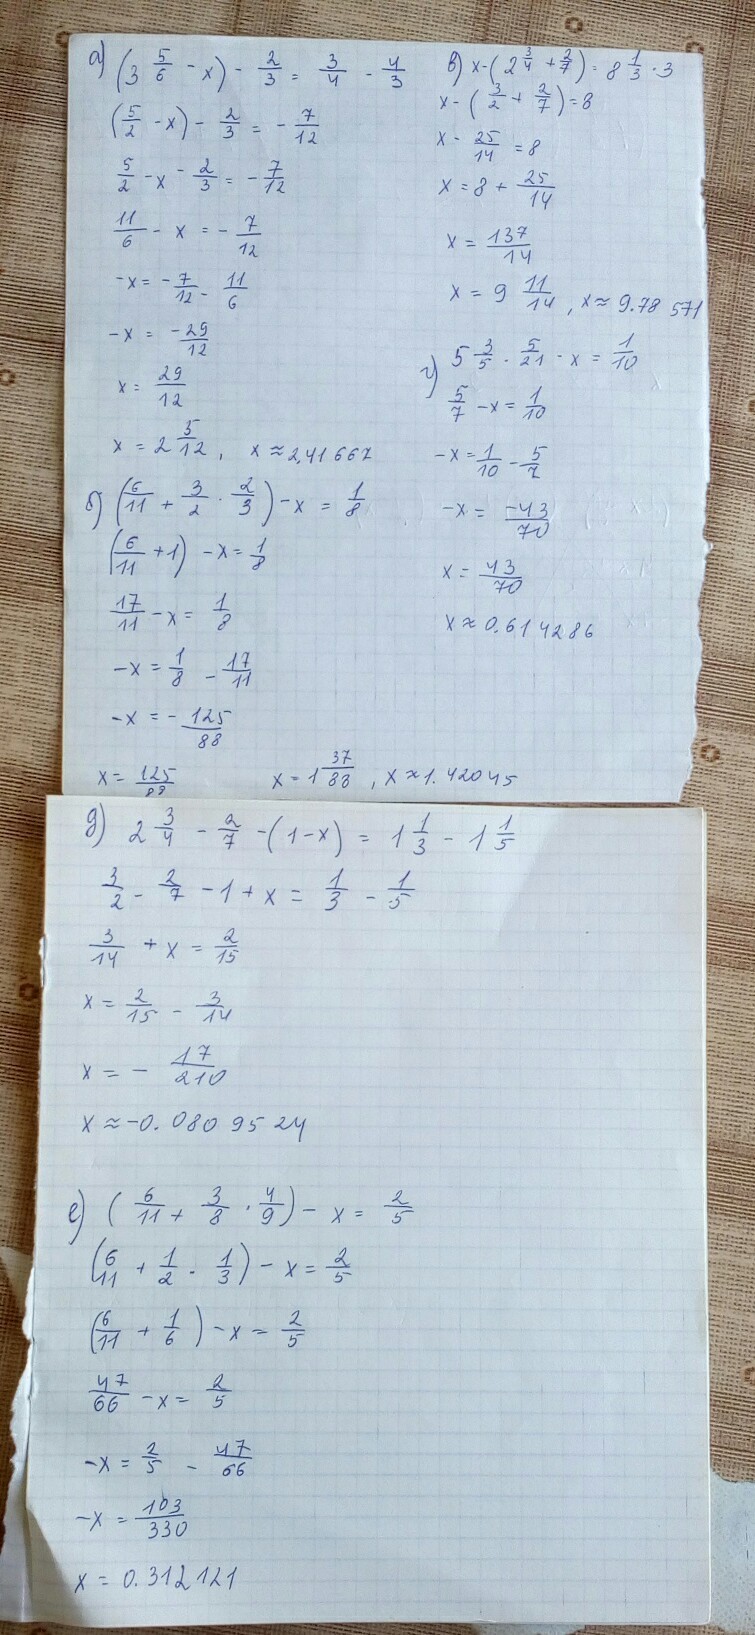 а) (3 5/6 - x) - 2/3 = 3/4 - 4/3
(5/2 - x) - 2/3 = - 7/12
5/2 - x - 2/3 = - 7/12
11/6 - x = - 7/12
-x = - 7/12 - 11/6
-x = -29/12
x = 29/12
x = 2 5/12, x ≈ 2,41667
б) (6/11 + 3/2 · 2/3) - x = 1/8
(6/11 + 1) - x = 1/8
17/11 - x = 1/8
-x = 1/8 - 17/11
-x = - 125/88
x = 125/88 x = 1 37/88, x ≈ 1.42045
в) x - (2 3/4 + 2/7) = 8 1/3 · 3
x - (3/2 + 2/7) = 8
x - 25/14 = 8
x = 8 + 25/14
x = 137/14
x = 9 11/14, x ≈ 9.78571
г) 5 3/5 · 5/21 - x = 1/10
5/7 - x = 1/10
-x = 1/10 - 5/7
-x = -43/70
x = 43/70
x ≈ 0.614286
д) 2 3/4 - 2/7 - (1 - x) = 1 1/3 - 1 1/5
3/2 - 2/7 - 1 + x = 1/3 - 1/5
3/14 + x = 2/15
x = 2/15 - 3/14
x = - 17/210
x ≈ -0.0809524
е) (6/11 + 3/8 · 4/9) - x = 2/5
(6/11 + 1/2 · 1/3) - x = 2/5
(6/11 + 1/6) - x = 2/5
47/66 - x = 2/5
-x = 2/5 - 47/66
-x = 103/330
x = 0.312121